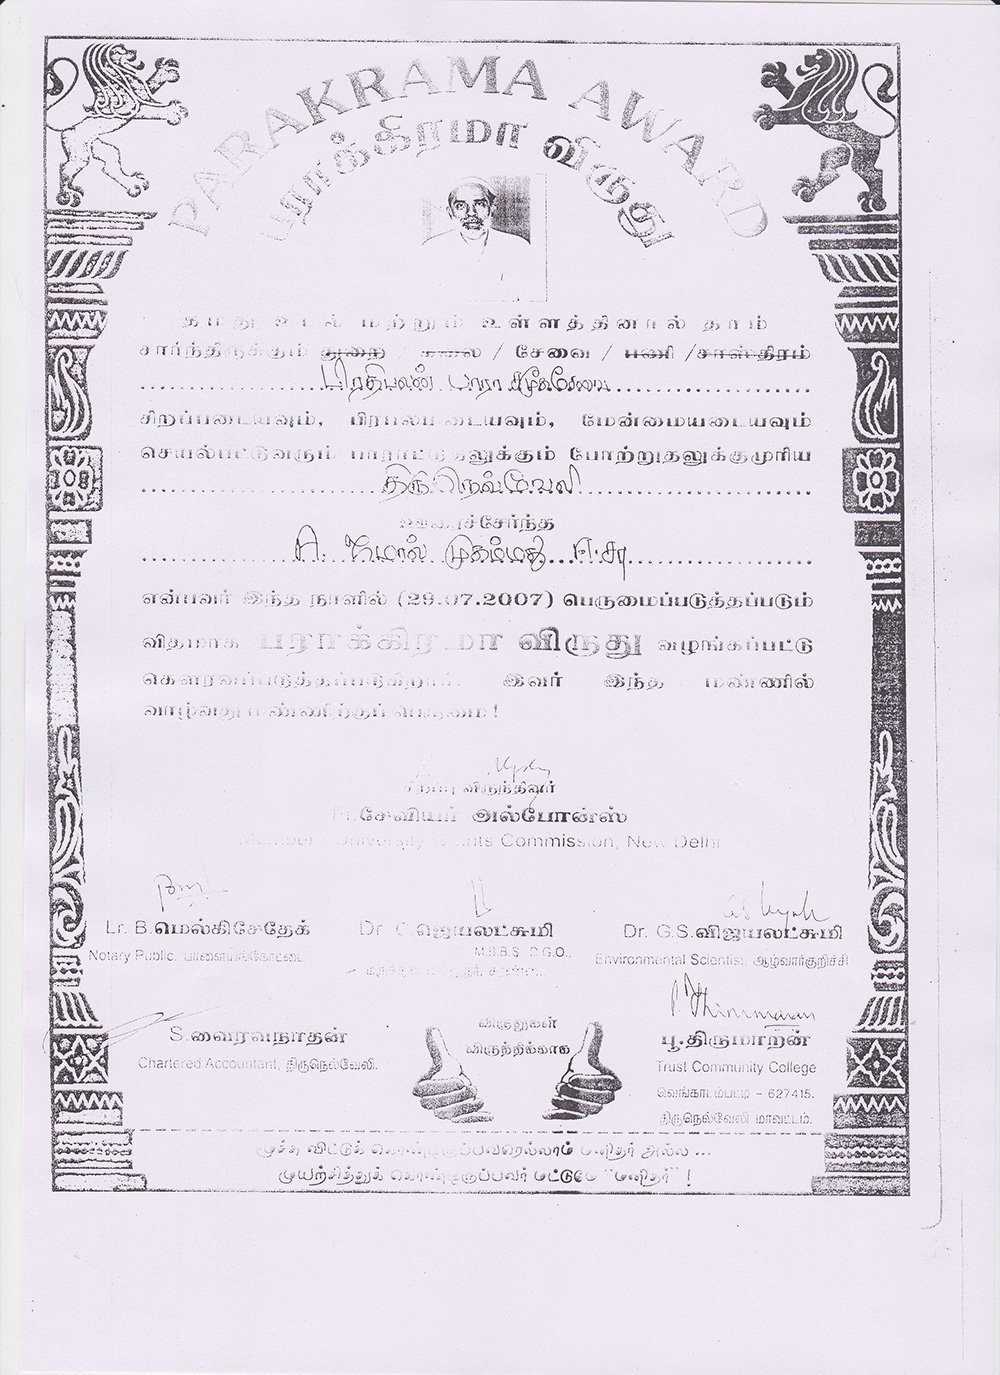 PARAKRAMA AWARD
பராக்கிரமா விருது
தமது உடல் மற்றும் உள்ளத்தினால் தாம்
சார்ந்திருக்கும் துறை / கலை / சேவை / பணி / சாஸ்திரம்
பிரதிபலன் பாரா சமூகசேவை
சிறப்படையவும், பிரபலமடையவும், மேன்மையடையவும்
செயல்பட்டுவரும் பாராட்டுதலுக்கும் போற்றுதலுக்குமுரிய
திருநெல்வேலி
ஊரைச்சேர்ந்த
A. கமால் முகம்மது
என்பவர் இந்த நாளில் (29.07.2007) பெருமைப்படுத்தப்படும்
விதமாக பராக்கிரமா விருது வழங்கப்பட்டு
கௌரவப்படுத்தப்படுகிறார். இவர் இந்த மண்ணில்
வாழ்வது மண்ணிற்குப் பெருமை!
சிறப்பு விருந்தினர்
சேவியர் அல்போன்ஸ்
Member University Grants Commission, New Delhi
Lr. B.மெல்கிசேதேக்
Notary Public, பாளையங்கோட்டை
Dr. ஜெயலட்சுமி
M.B.B.S D.G.O.,
Dr. G.S.விஜயலட்சுமி
Environmental Scientist, ஆழ்வார்குறிச்சி
S.வைரவநாதன்
Chartered Accountant, திருநெல்வேலி.
விருதுகள்
விருத்திக்காக
P Thirumaran
பூ.திருமாறன்
Trust Community College
வெங்காடம்பட்டி - 627415.
திருநெல்வேலி மாவட்டம்.
மூச்சு விட்டுக் கொண்டிருப்பவரெல்லாம் மனிதர் அல்ல ...
முயற்சித்துக் கொண்டிருப்பவர் மட்டுமே "மனிதர்" !